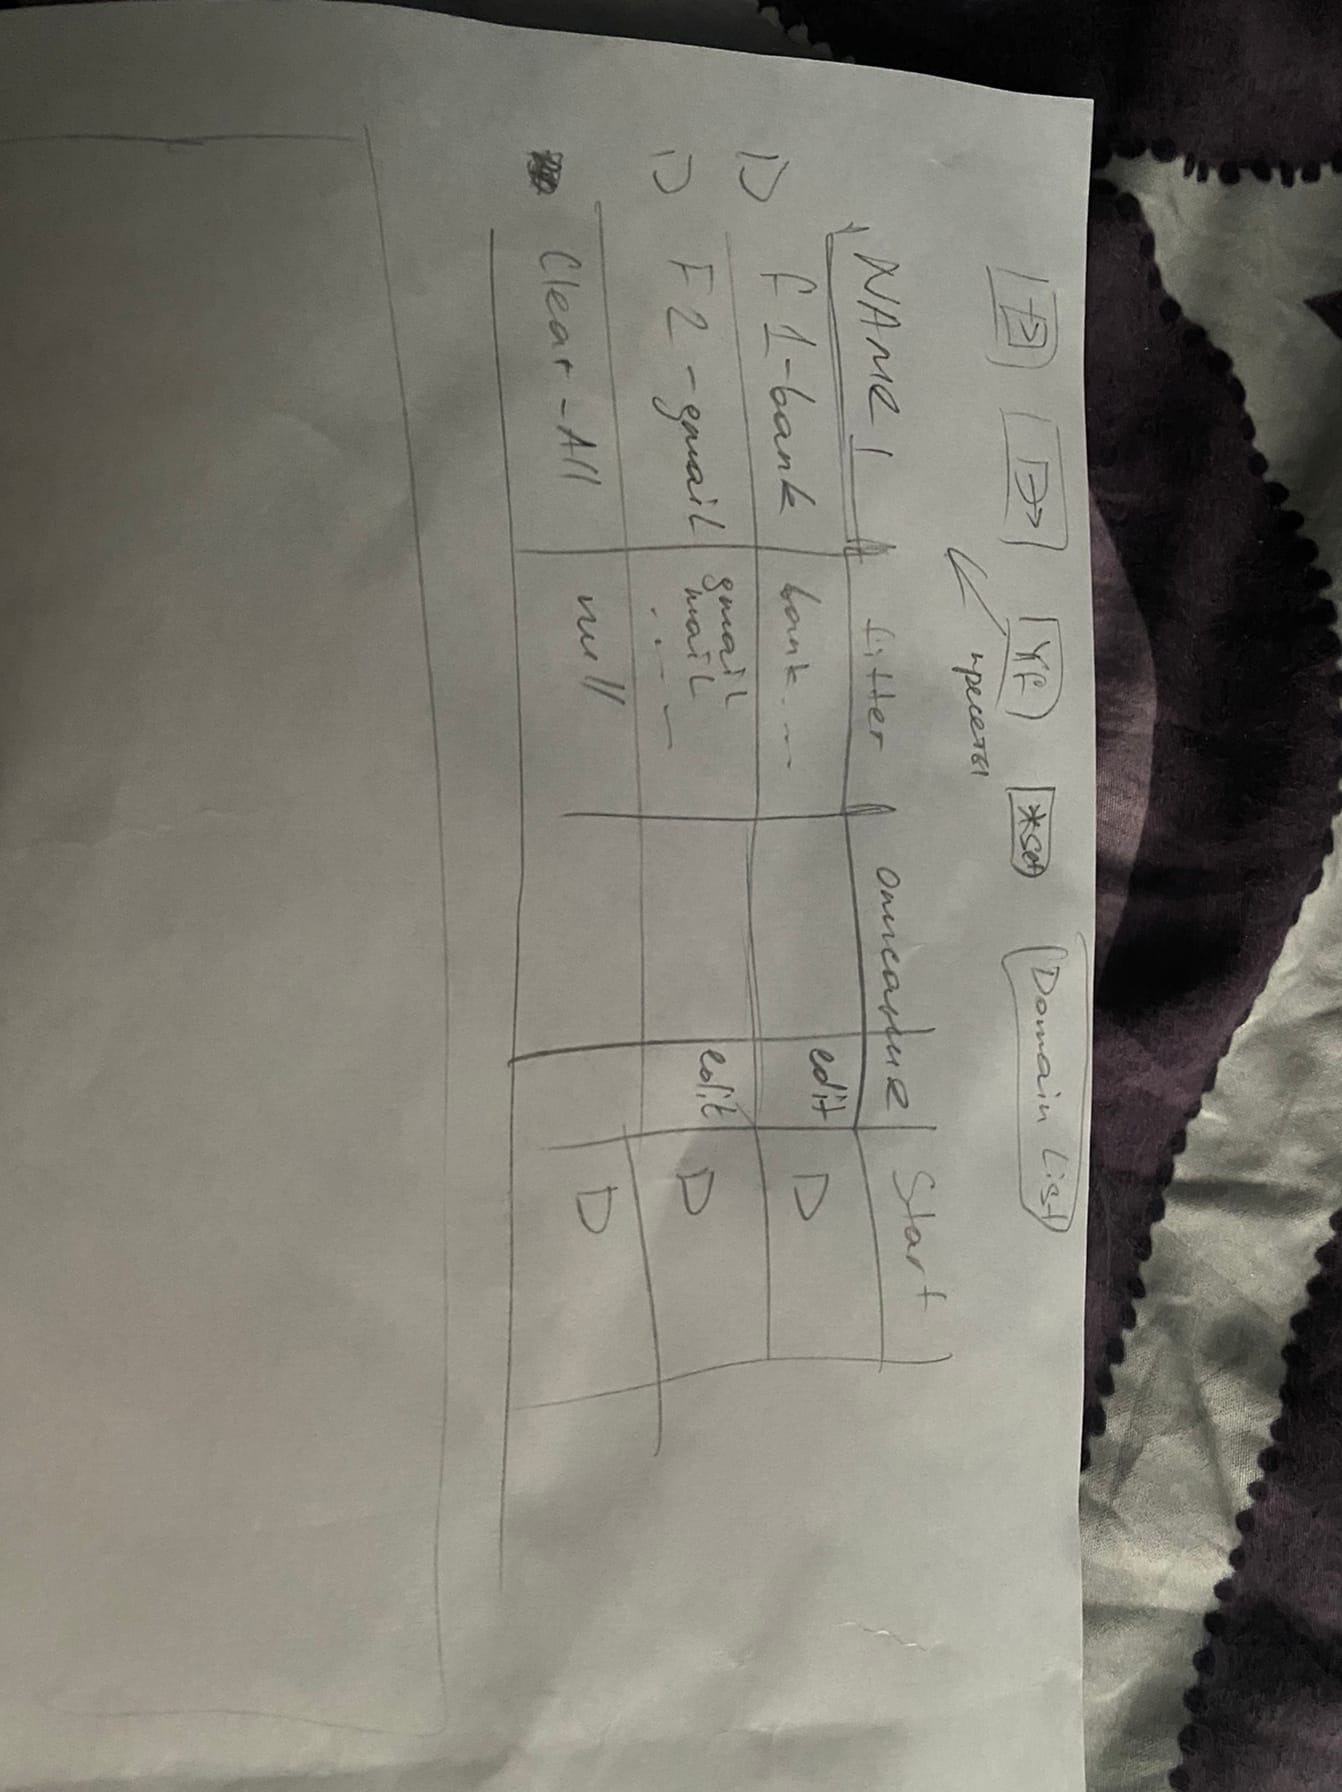 Yf *set Domain List
пресеты
NAME fitter описание Start
F1-bank bank.... edit D
F2-gmail gmail edit D
mail
.....
Clear-All null D